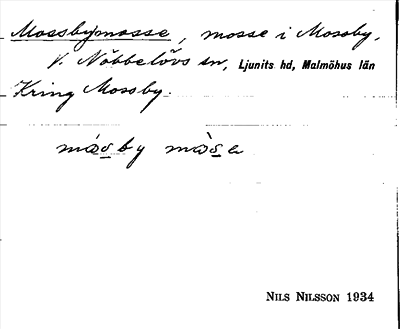 Mossbymosse, mosse i Mossby,
V. Nöbbelövs sn, Ljunits hd, Malmöhus län
Kring Mossby.
måsby måse
NILS NILSSON 1934